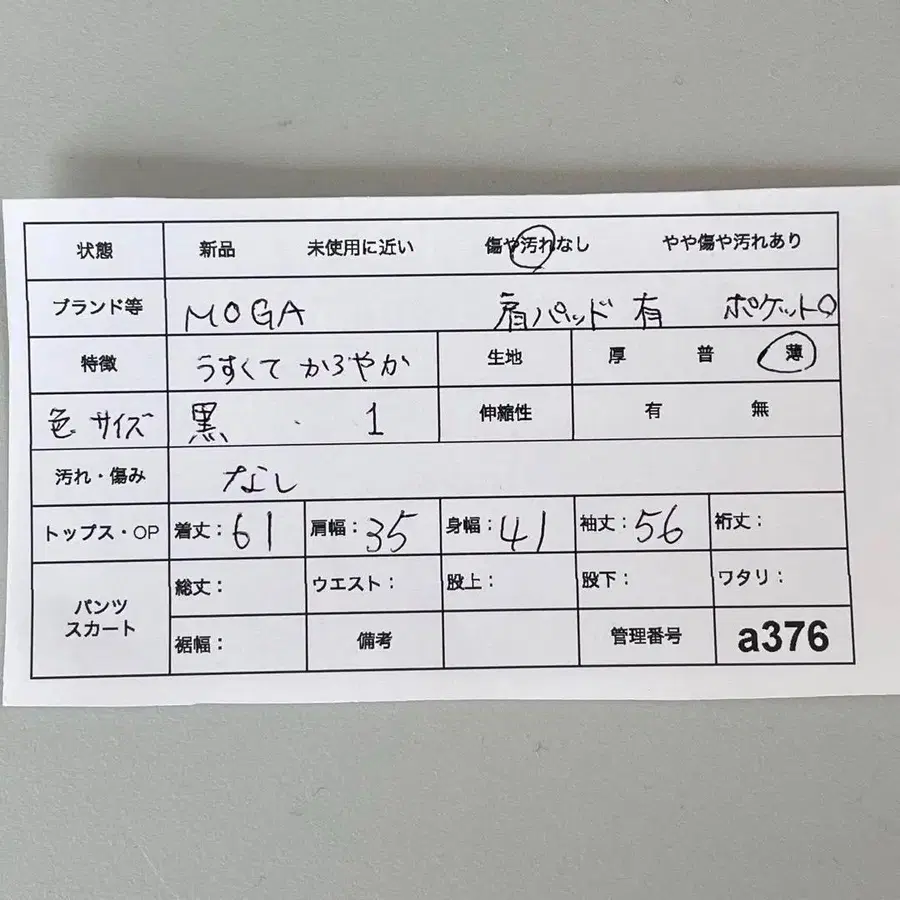 状態 新品 未使用に近い 傷や汚れなし やや傷や汚れあり
ブランド等 MOGA 肩パッド 有 ポケット〇
特徴 うすくて かろやか 生地 厚 普 薄
色 サイズ 黒 . 1 伸縮性 有 無
汚れ・傷み なし
トップス・OP 着丈：61 肩幅：35 身幅：41 袖丈：56 裄丈：
パンツ スカート 総丈： ウエスト： 股上： 股下： ワタリ：
裾幅： 備考 管理番号 a376